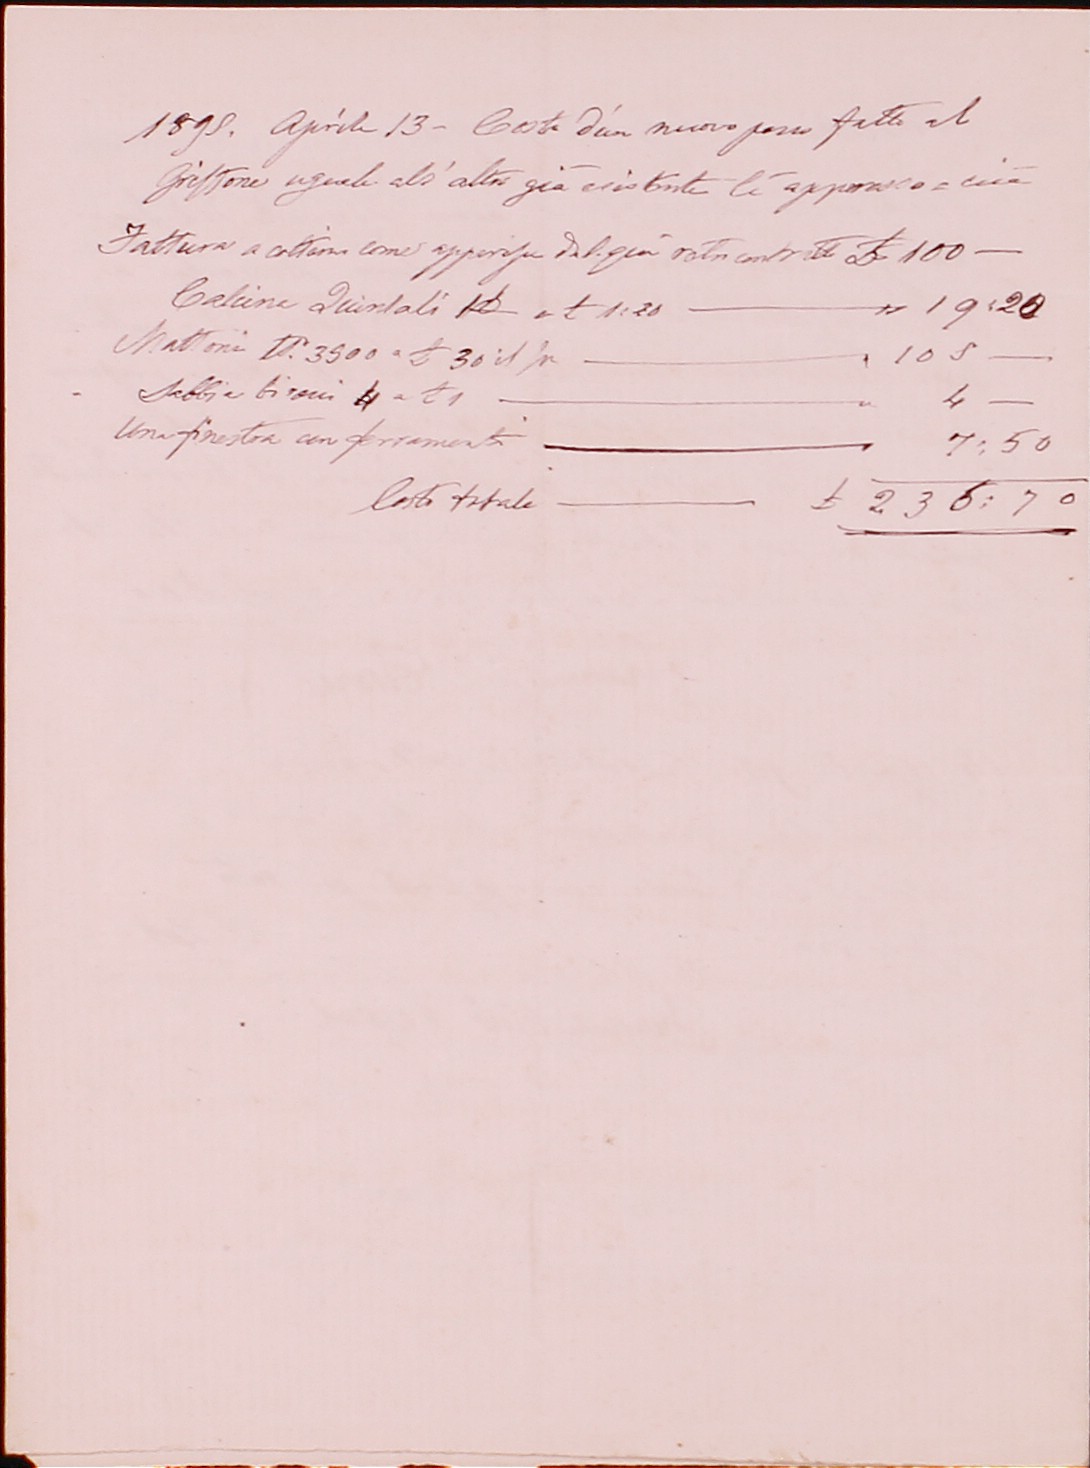 1895. Aprile 13 - Costo d'un nuovo pozzo fatto al
Griffone uguale all'altro già esistente lì appresso = cioè
Fattura a cottimo come apparisce dal quì retro contratto £ 100 —
Calcina Quintali 16 a £ 1:20 — " 19:20
Mattoni N. 3500 a £ 30 il — " 105 —
Sabbia birocci 4 a £ 1 — " 4 —
Una finestra con ferramenti — " 7:50
Costo totale — £ 235:70